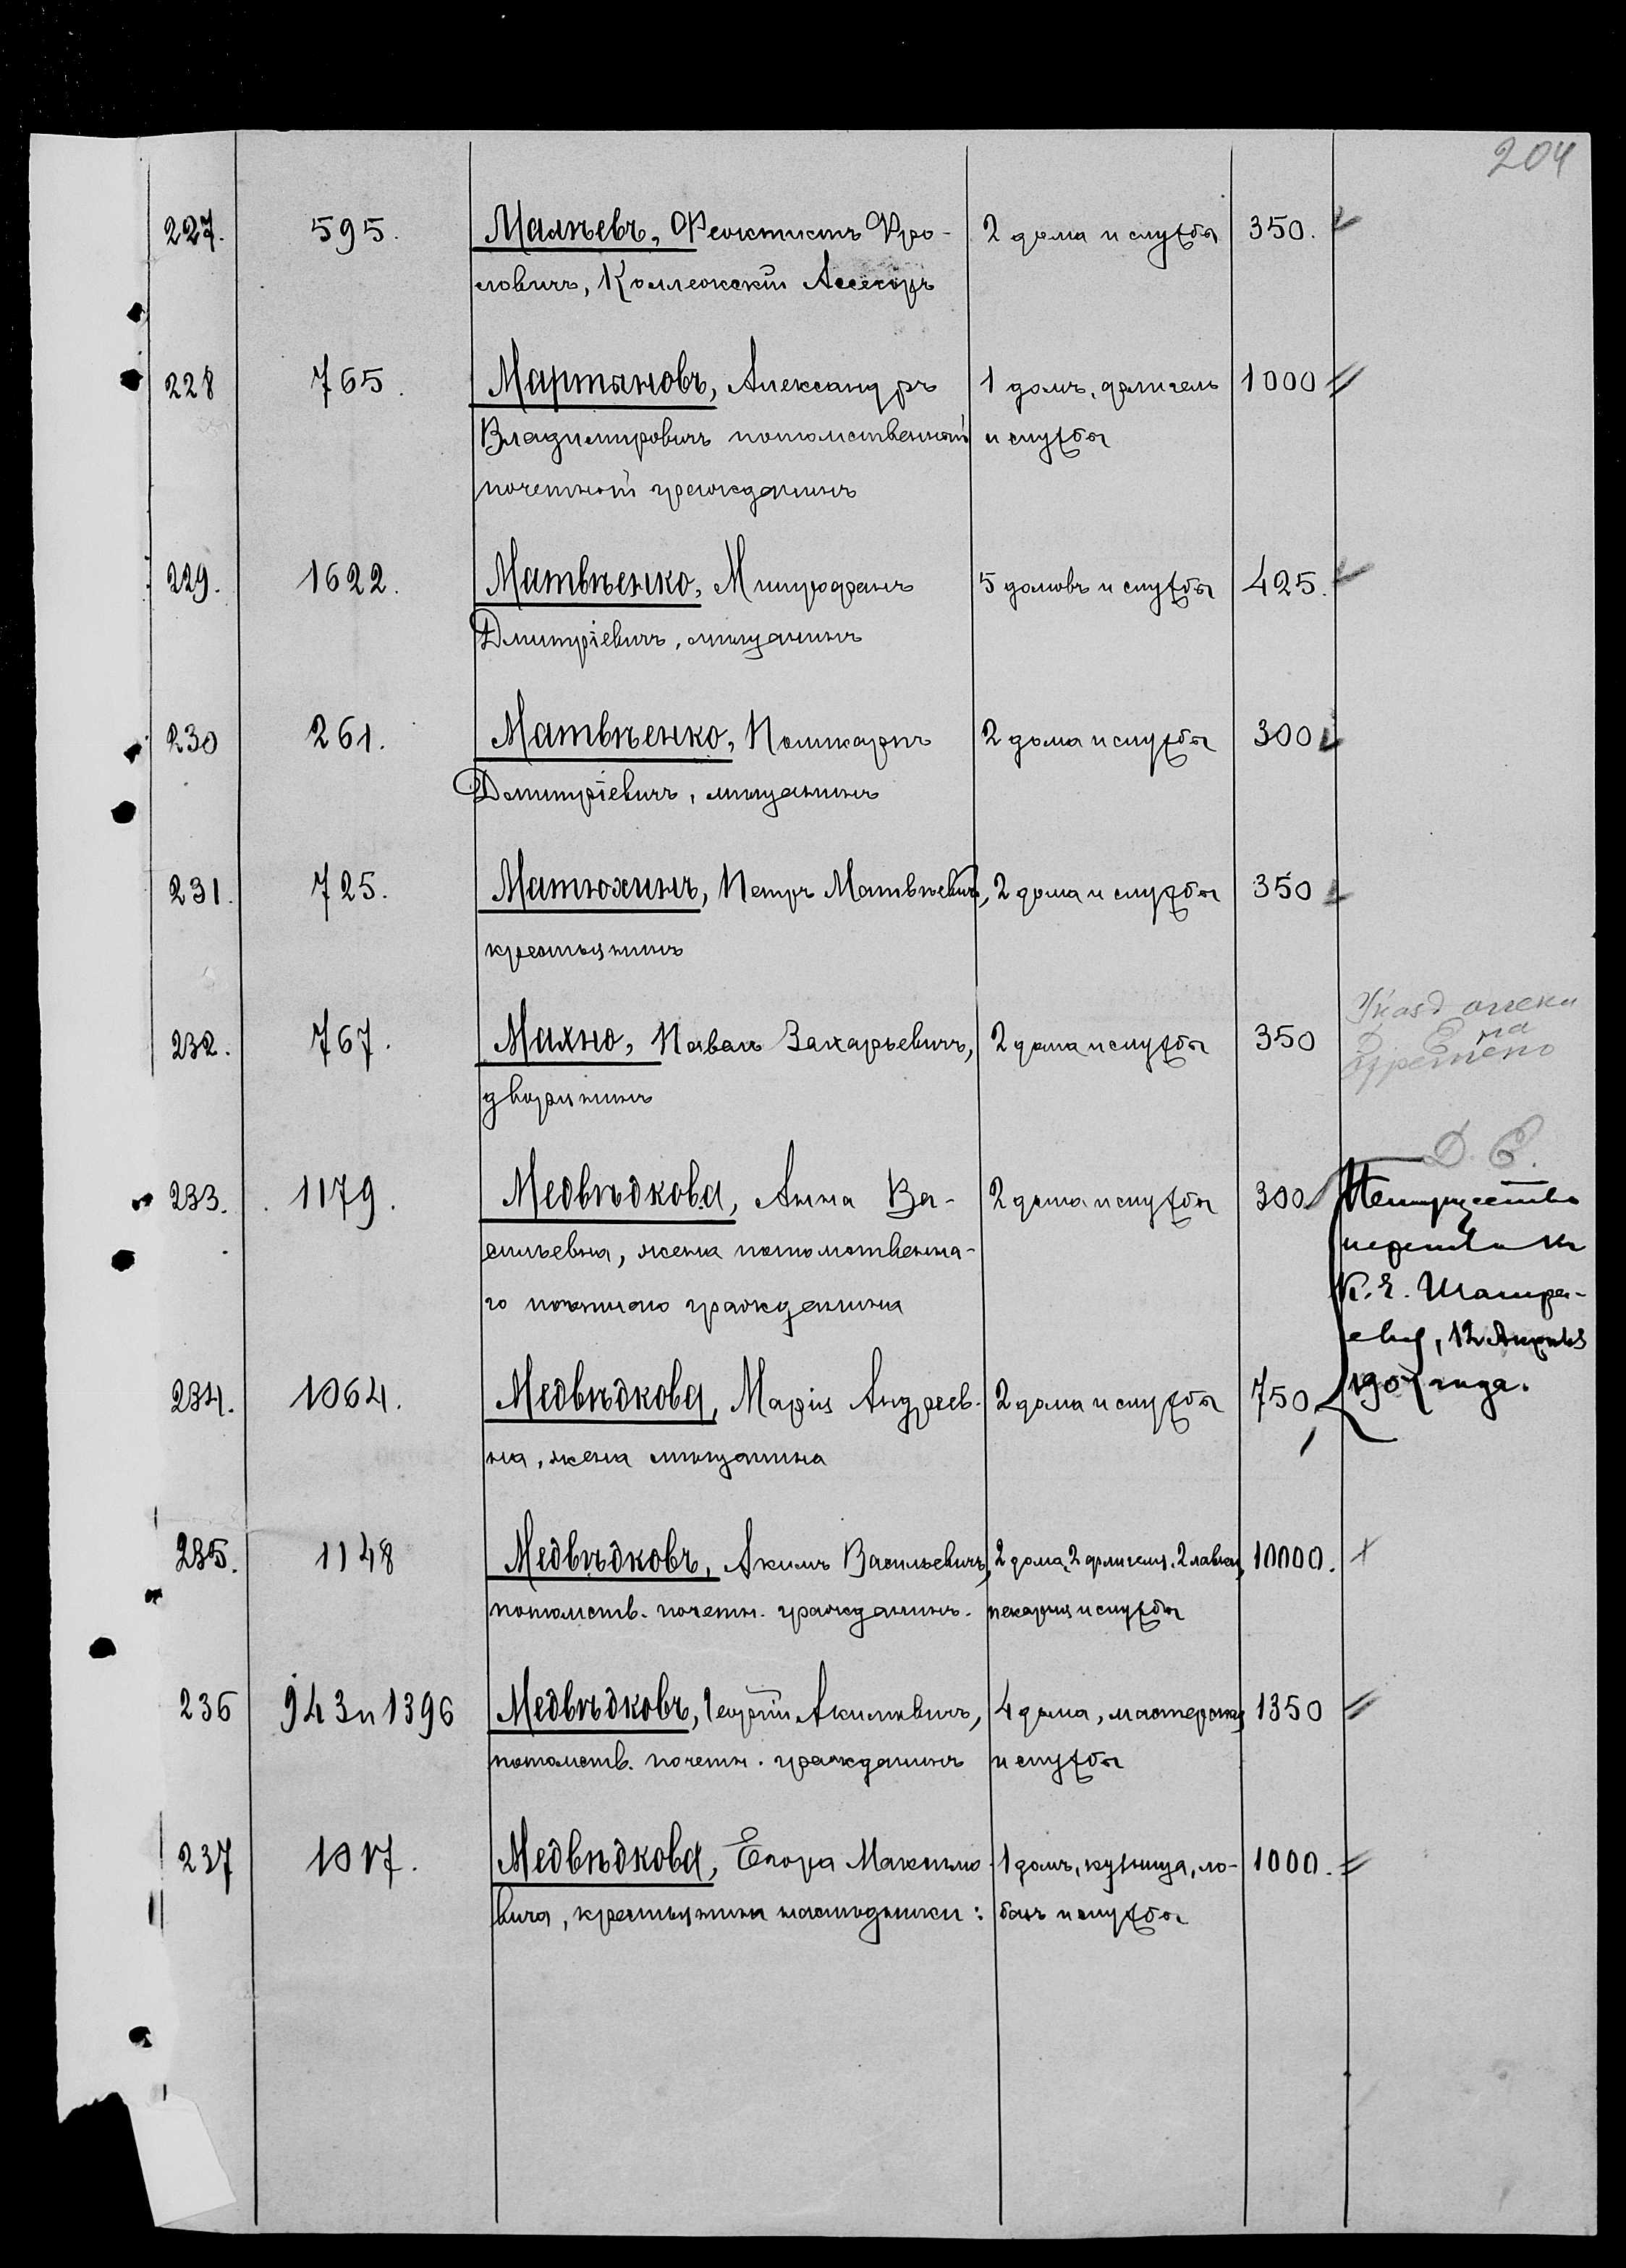 204
227. 595. Малѣевъ, Феоктистъ Фро- 2 дома и службы 350.
ловичъ, Коллежскій Асесоръ
228 765. Мартяновъ, Александръ 1 домъ, флигель 1000
Владимировичъ потомственный и службы
почетный гражданинъ
229. 1622. Матвѣенко, Митрофанъ 5 домовъ и службы 425.
Дмитріевичъ, мѣщанинъ
230 261. Матвѣенко, Поликарпъ 2 дома и службы 300
Дмитріевичъ, мѣщанинъ
231. 725. Матюхинъ, Петръ Матвѣевичъ, 2 дома и службы 350
крестьянинъ
232. 767. Махно, Павелъ Захарьевичъ, 2 дома и службы 350
дворянинъ
Д. С.
233. 1179. Медвѣдкова, Анна Ва- 2 дома и службы 300
сильевна, жена потомственна-
го почетнаго гражданина
Имущество
к
К. Е. Шапра-
, 12 Апрѣля
года.
234. 1064. Медвѣдкова, Марія Андреев- 2 дома и службы 750
на, жена мѣщанина
235. 1148 Медвѣдковъ, Акимъ Васильевичъ, 2 дома, 2 флигеля, 2 лавки, 10000.
потомств. почетн. гражданинъ. пекарня и службы
236 943 и 1396 Медвѣдковъ, Георгій Акимовичъ, 4 дома, мастерская 1350
потомств. почетн. гражданинъ и службы
237 1017. Медвѣдкова, Егора Максимо- 1 домъ, кузница, ло- 1000.
вича, крестьянина наслѣдники: базъ и службы